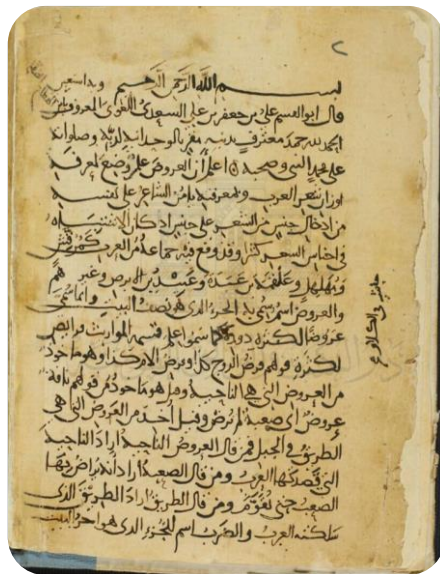 ٢
بسم الله الرحمن الرحيم وبه استعين
قال ابو القسم علي بن جعفر بن علي السعدي اللغوي المعروف بابن
الحمد لله حمد معترف بذنبه مقر بالوحدانية لربه وصلواته
على محمد النبي وصحبه اعلم أن العروض علم وضع لمعرفة
اوزان شعر العرب وبمعرفته يأمن الشاعر على نفسه
من ادخال جنس من الشعر على جنس اذ كان الاشتباه
في اجناس الشعر كثيرا وقد وقع فيه جماعة من العرب كمرقش
ومهلهل وعلقمة بن عبدة وعبيد بن الابرص وغيرهم
والعروض اسم سمي به الجزء الذي هو نصف البيت وانما سمي
عروضا لكثرة دوره كما سموا علم قسمة المواريث فرايض
لكثرة قولهم فرض الزوج كذا وفرض الام كذا وهو ماخوذ
من العروض التي هي الناحية وقيل هو ماخوذ من قولهم ناقة
عروض اي صعبة لم ترض وقيل أخذ من العروض التي هي
الطريق في الجبل فمن قال العروض الناحية اراد الناحية
التي قصدتها العرب ومن قال الصعبة اراد انه يراض بها
الصعب حتى يقوم ومن قال الطريق اراد الطريق الذي
سلكته العرب والضرب اسم للجزء الذي هو اخر البيت